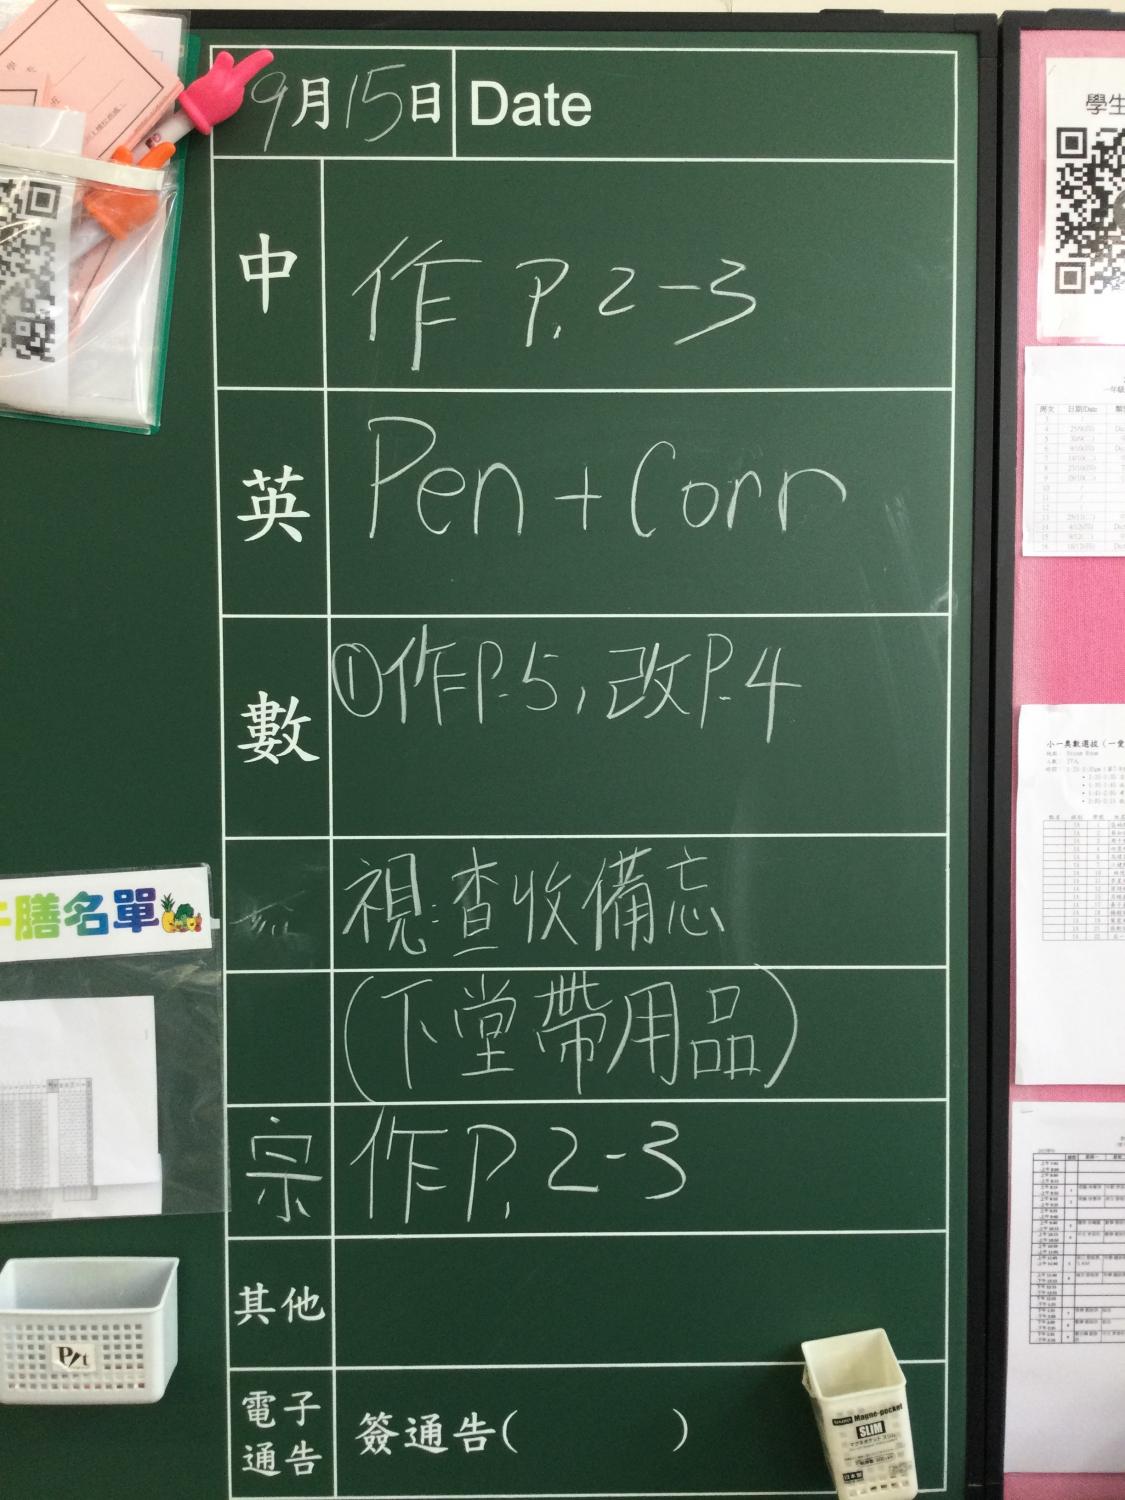 9月15日 Date
中 作 P.2-3
英 Pen + Corr
數 ①作P.5，改P.4
視：查收備忘
(下堂帶用品)
宗 作P.2-3
其他
電子通告 簽通告( )
膳名單
P/t
Magne-pocket
SLIM
學生
小一奧數選拔（一愛
周次 日期/Date